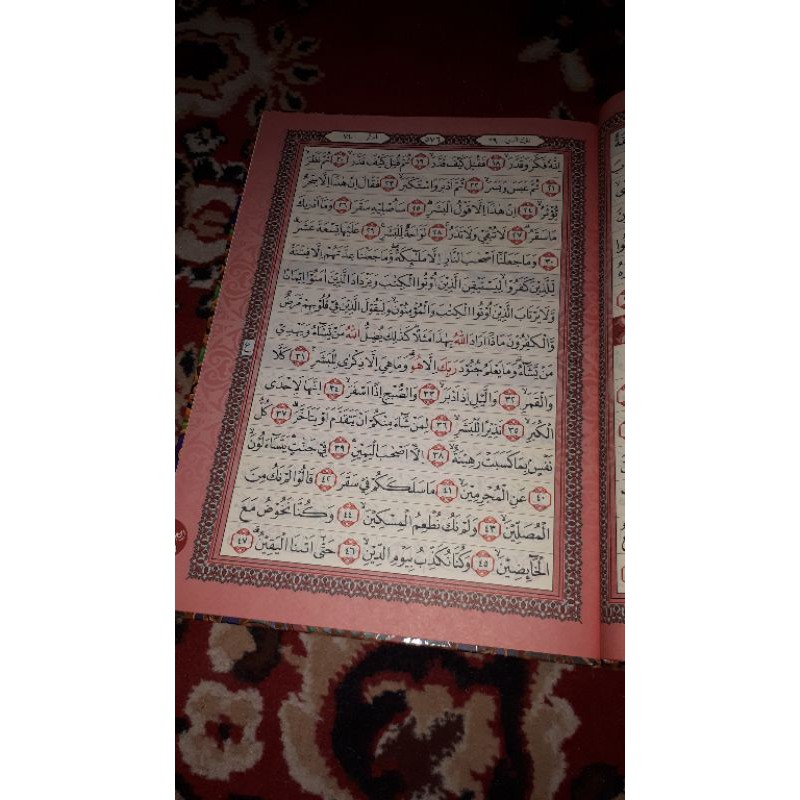 الجزء ٢٩ ٥٧٦ المدثر ٧٤
اِنَّهٗ فَكَّرَ وَقَدَّرَۙ ١٨ فَقُتِلَ كَيْفَ قَدَّرَۙ ١٩ ثُمَّ قُتِلَ كَيْفَ قَدَّرَۙ ٢٠ ثُمَّ نَظَرَۙ
٢١ ثُمَّ عَبَسَ وَبَسَرَۙ ٢٢ ثُمَّ اَدْبَرَ وَاسْتَكْبَرَۙ ٢٣ فَقَالَ اِنْ هٰذَآ اِلَّا سِحْرٌ
يُّؤْثَرُۙ ٢٤ اِنْ هٰذَآ اِلَّا قَوْلُ الْبَشَرِۗ ٢٥ سَاُصْلِيْهِ سَقَرَ ٢٦ وَمَآ اَدْرٰىكَ
مَا سَقَرُۗ ٢٧ لَا تُبْقِيْ وَلَا تَذَرُۚ ٢٨ لَوَّاحَةٌ لِّلْبَشَرِۚ ٢٩ عَلَيْهَا تِسْعَةَ عَشَرَۗ
٣٠ وَمَا جَعَلْنَآ اَصْحٰبَ النَّارِ اِلَّا مَلٰۤىِٕكَةً ۖوَّمَا جَعَلْنَا عِدَّتَهُمْ اِلَّا فِتْنَةً
لِّلَّذِيْنَ كَفَرُوْاۙ لِيَسْتَيْقِنَ الَّذِيْنَ اُوْتُوا الْكِتٰبَ وَيَزْدَادَ الَّذِيْنَ اٰمَنُوْٓا اِيْمَانًا
وَّلَا يَرْتَابَ الَّذِيْنَ اُوْتُوا الْكِتٰبَ وَالْمُؤْمِنُوْنَۙ وَلِيَقُوْلَ الَّذِيْنَ فِيْ قُلُوْبِهِمْ مَّرَضٌ
وَّالْكٰفِرُوْنَ مَاذَآ اَرَادَ اللّٰهُ بِهٰذَا مَثَلًاۗ كَذٰلِكَ يُضِلُّ اللّٰهُ مَنْ يَّشَاۤءُ وَيَهْدِيْ
مَنْ يَّشَاۤءُۗ وَمَا يَعْلَمُ جُنُوْدَ رَبِّكَ اِلَّا هُوَۗ وَمَا هِيَ اِلَّا ذِكْرٰى لِلْبَشَرِ ٣١ كَلَّا
وَالْقَمَرِۙ ٣٢ وَالَّيْلِ اِذْ اَدْبَرَۙ ٣٣ وَالصُّبْحِ اِذَآ اَسْفَرَۙ ٣٤ اِنَّهَا لَاِحْدَى
الْكُبَرِۙ ٣٥ نَذِيْرًا لِّلْبَشَرِۙ ٣٦ لِمَنْ شَاۤءَ مِنْكُمْ اَنْ يَّتَقَدَّمَ اَوْ يَتَاَخَّرَۗ ٣٧ كُلُّ
نَفْسٍۢ بِمَا كَسَبَتْ رَهِيْنَةٌۙ ٣٨ اِلَّآ اَصْحٰبَ الْيَمِيْنِۛ ٣٩ فِيْ جَنّٰتٍ يَتَسَاۤءَلُوْنَۙ
٤٠ عَنِ الْمُجْرِمِيْنَۙ ٤١ مَا سَلَكَكُمْ فِيْ سَقَرَ ٤٢ قَالُوْا لَمْ نَكُ مِنَ
الْمُصَلِّيْنَۙ ٤٣ وَلَمْ نَكُ نُطْعِمُ الْمِسْكِيْنَۙ ٤٤ وَكُنَّا نَخُوْضُ مَعَ
الْخَاۤىِٕضِيْنَۙ ٤٥ وَكُنَّا نُكَذِّبُ بِيَوْمِ الدِّيْنِۙ ٤٦ حَتّٰىٓ اَتٰىنَا الْيَقِيْنُۗ ٤٧